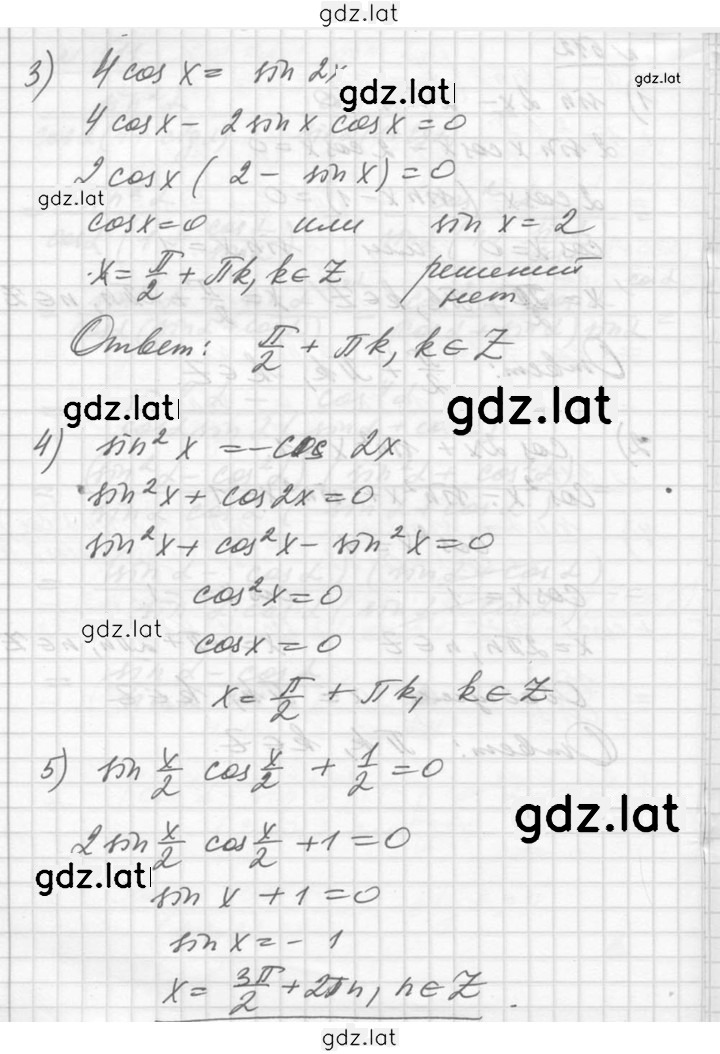 gdz.lat
3) 4 cos x = sin 2x
gdz.lat
gdz.lat
4 cos x - 2 sin x cos x = 0
2 cos x ( 2 - sin x ) = 0
gdz.lat
cos x = 0 или sin x = 2
x = π/2 + πk, k ∈ Z решений
нет
Ответ: π/2 + πk, k ∈ Z
gdz.lat
gdz.lat
4) sin² x = - cos 2x
sin² x + cos 2x = 0
sin² x + cos² x - sin² x = 0
cos² x = 0
gdz.lat
cos x = 0
x = π/2 + πk, k ∈ Z
5) sin x/2 cos x/2 + 1/2 = 0
gdz.lat
2 sin x/2 cos x/2 + 1 = 0
gdz.lat
sin x + 1 = 0
sin x = - 1
x = 3π/2 + 2πn, n ∈ Z
gdz.lat